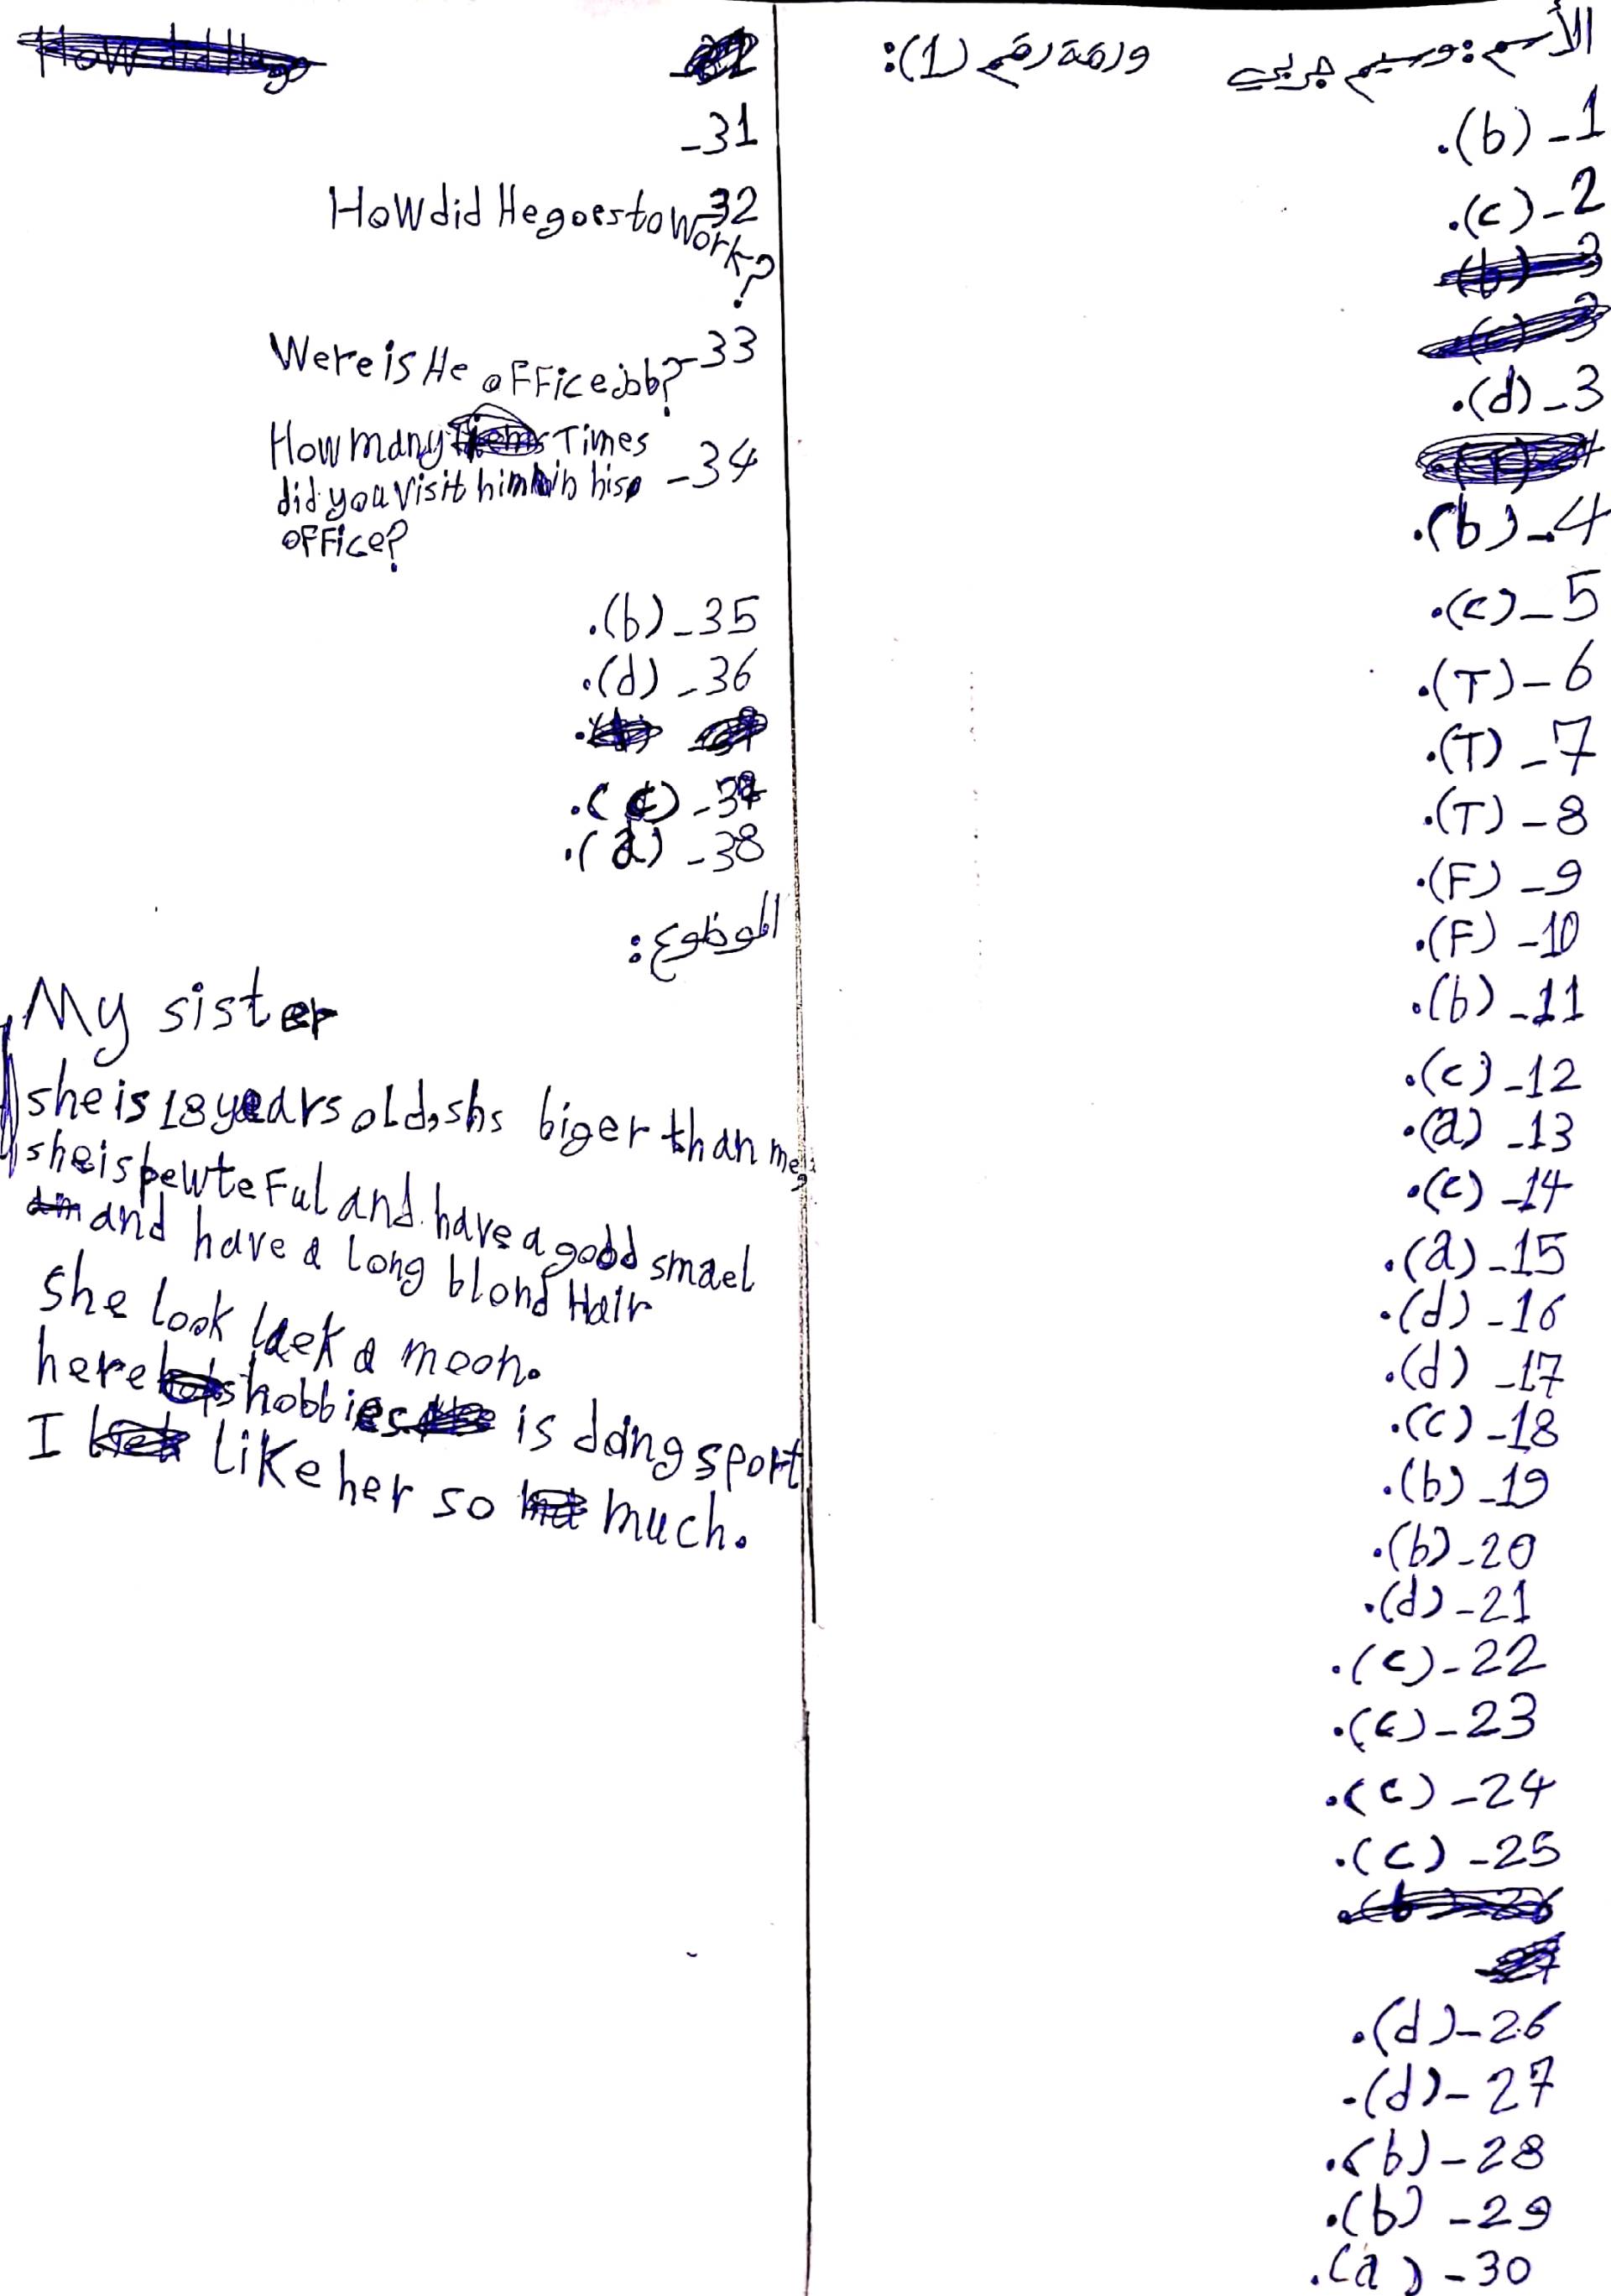 الأسم: وسيم جربي ورقة رقم (1):
1- (b).
2- (c).
3- (d).
4- (b).
5- (c).
6- (T).
7- (T).
8- (T).
9- (F).
10- (F).
11- (b).
12- (c).
13- (a).
14- (c).
15- (a).
16- (d).
17- (d).
18- (c).
19- (b).
20- (b).
21- (d).
22- (c).
23- (c).
24- (c).
25- (c).
26- (d).
27- (d).
28- (b).
29- (b).
30- (a).
31-
32- How did He goes to work?
33- Were is He office job?
34- How many Times
did you visit him in his
office?
35- (b).
36- (d).
37- (c).
38- (a).
الموظوع:
My sister
she is 18 years old, shs biger than me,
she is pewteful and have a godd smael
and have a long blond Hair
she look laek a moon.
here hobbies is doing sport
I like her so much.